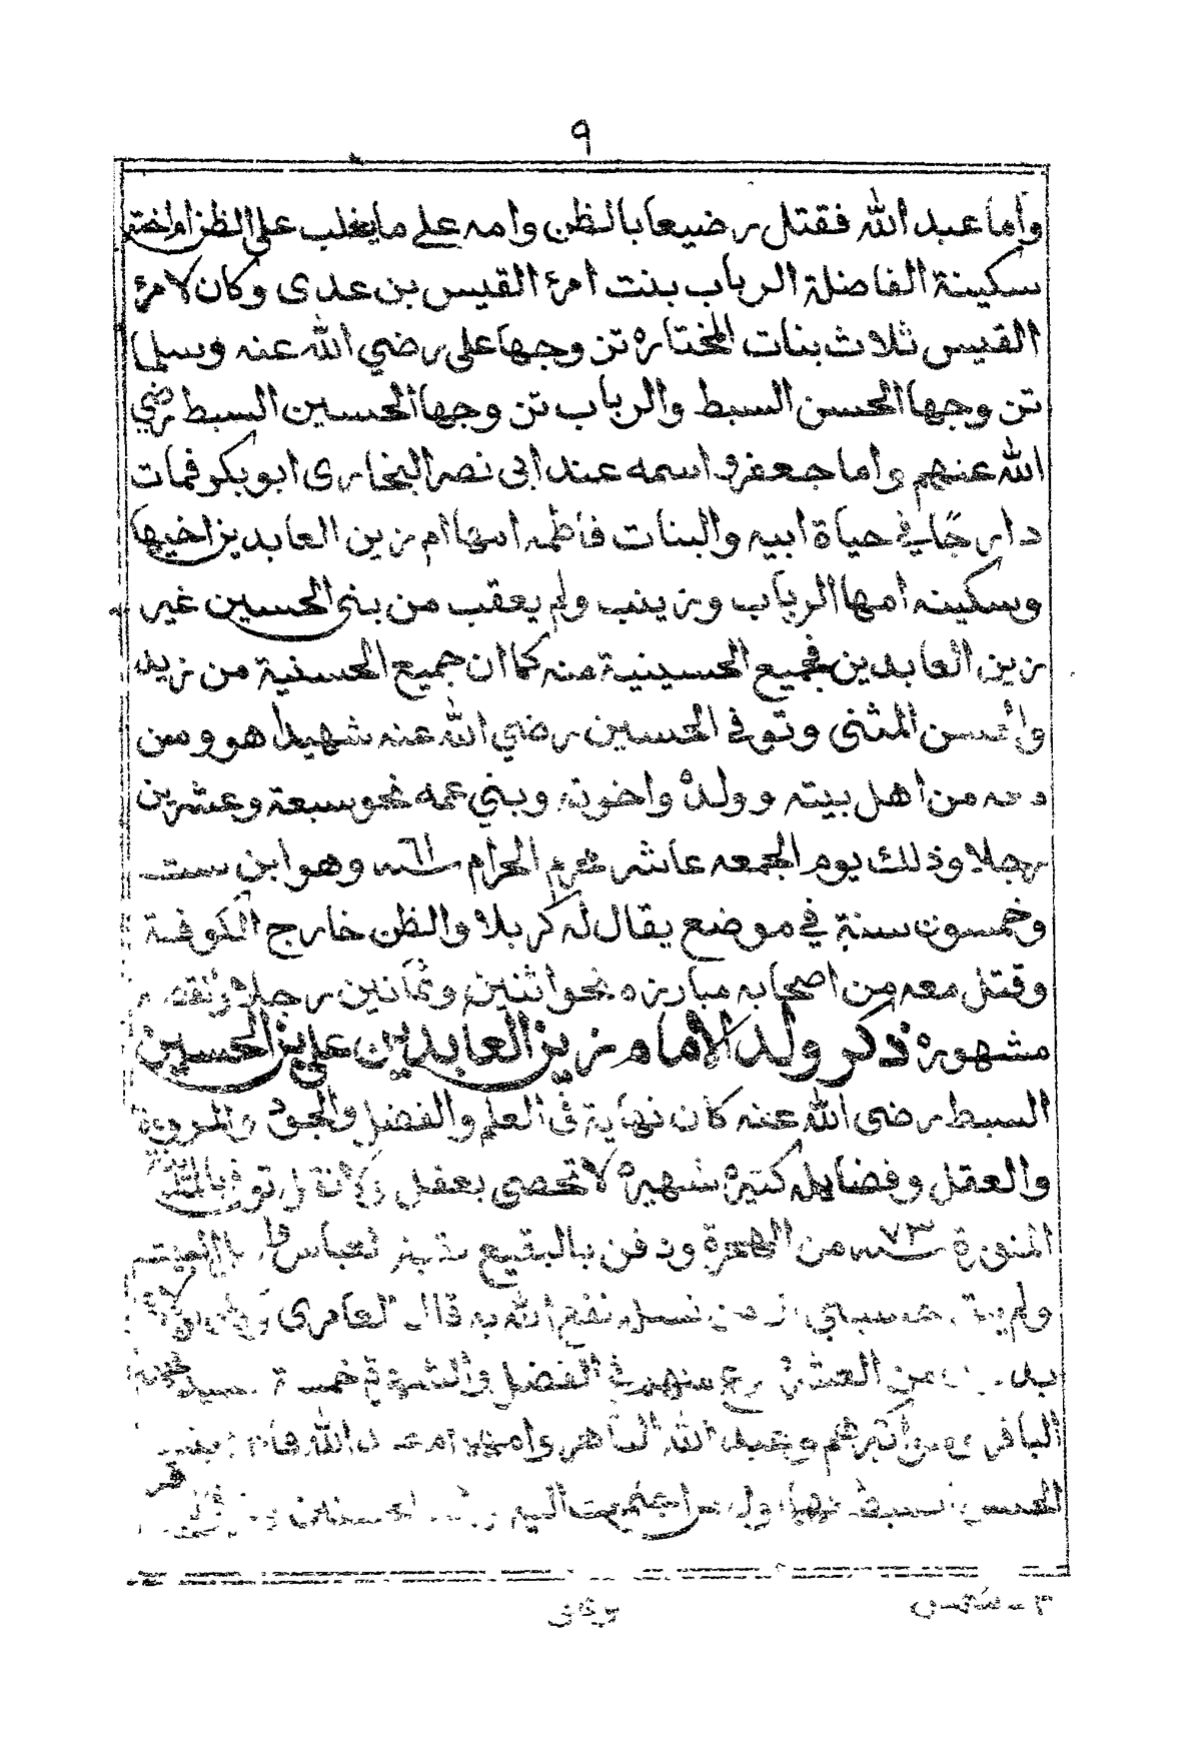 ٩
واما عبد الله فقتل رضيعا بالظن وامه على ما يغلب على الظن ام اخته
سكينة الفاضلة الرباب بنت امرء القيس بن عدى وكان لامرء
القيس ثلاث بنات المختارة تزوجها على رضي الله عنه وسلما
تزوجها الحسن السبط والرباب تزوجها الحسين السبط رضي
الله عنهم واما جعفر واسمه عند ابى نصر البخارى ابو بكر فمات
دارجًا في حياة ابيه والبنات فاطمه امها ام زين العابدين اخيها
وسكينه امها الرباب وزينب ولم يعقب من بنى الحسين غير
زين العابدين فجميع الحسينية منه كما ان جميع الحسنية من زيد
والحسن المثنى وتوفى الحسين رضي الله عنه شهيدا هو ومن
معه من اهل بيته وولده واخوته وبني عمه نحو سبعة وعشرين
رجلا وذلك يوم الجمعه عاشر محرم الحرام سنه ٦١ وهو ابن ست
وخمسون سنة في موضع يقال له كربلا والظن خارج الكوفة
وقتل معه من اصحابه مبارزه نحو اثنين وثمانين رجلا وقصته
مشهورة ذكر ولد الامام زين العابدين على بن الحسين
السبط رضى الله عنه كان نهاية فى العلم والفضل والجود والمروءة
والعقل وفضايله كثيرة شهيرة لا تحصى بعقل توفى بالمدينة
المنورة سنه ٧٣ من الهجرة ودفن بالبقيع
ولم حسيني من نسله نفع الله به قال العامرى
من العشرة منهم في الفضل والشهرة خمسة
الباقر وهو اكبرهم وعبد الله الباهر وامهما ام عبد الله فاطمة بنت
الحسن السبط اليه
٢ - شمس